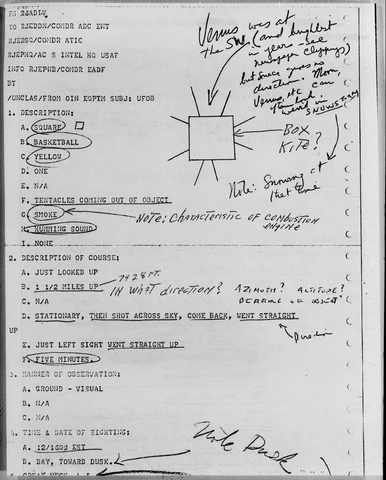 FM 26ADIV
TO RJEDDN/COMDR ADC ENT
RJEDSQ/COMDR ATIC
RJEPHQ/AC S INTEL HQ USAF
INFO RJEPNB/COMDR EADF
BT
/UNCLAS/FROM OIN EQPTM SUBJ: UFOB
Venus was at
the SW (and brightest
in years - see
newspaper clippings)
but since gives no
direction. Moon,
Venus, etc can
1. DESCRIPTION:
A. SQUARE
B. BASKETBALL
C. YELLOW
D. ONE
E. N/A
F. TENTACLES COMING OUT OF OBJECT
G. SMOKE
H. HUMMING SOUND
I. NONE
BOX
KITE?
Note: Snowing at
that time
NOTE: CHARACTERISTIC OF COMBUSTION
ENGINE
2. DESCRIPTION OF COURSE:
A. JUST LOOKED UP
B. 1 1/2 MILES UP
7928 FT.
IN WHAT DIRECTION? AZIMUTH? ALTITUDE?
C. N/A
D. STATIONARY, THEN SHOT ACROSS SKY, COME BACK, WENT STRAIGHT
UP
Direction
E. JUST LEFT SIGHT WENT STRAIGHT UP
F. FIVE MINUTES.
3. MANNER OF OBSERVATION:
A. GROUND - VISUAL
B. N/A
C. N/A
4. TIME & DATE OF SIGHTING:
A. 12/1600 EST
B. DAY, TOWARD DUSK.
Note Dusk